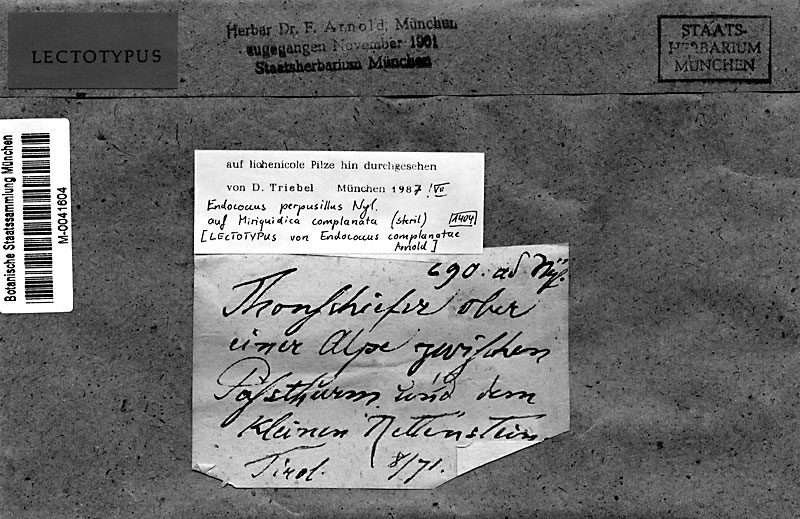 LECTOTYPUS
Herbar Dr. F. Arnold, München
zugegangen November 1961
Staatsherbarium München
STAATS-
HERBARIUM
MÜNCHEN
Botanische Staatssammlung München
M-0041604
auf lichenicole Pilze hin durchgesehen
von D. Triebel München 1987 / VII
Endococcus perpusillus Nyl.
auf Miriquidica complanata (steril) 1404
[LECTOTYPUS von Endococcus complanatae
Arnold]
690. ad Nyl.
Thonschiefer ober
einer Alpe zwischen
und dem
kleinen Rettenstein
Tirol. 8/71.